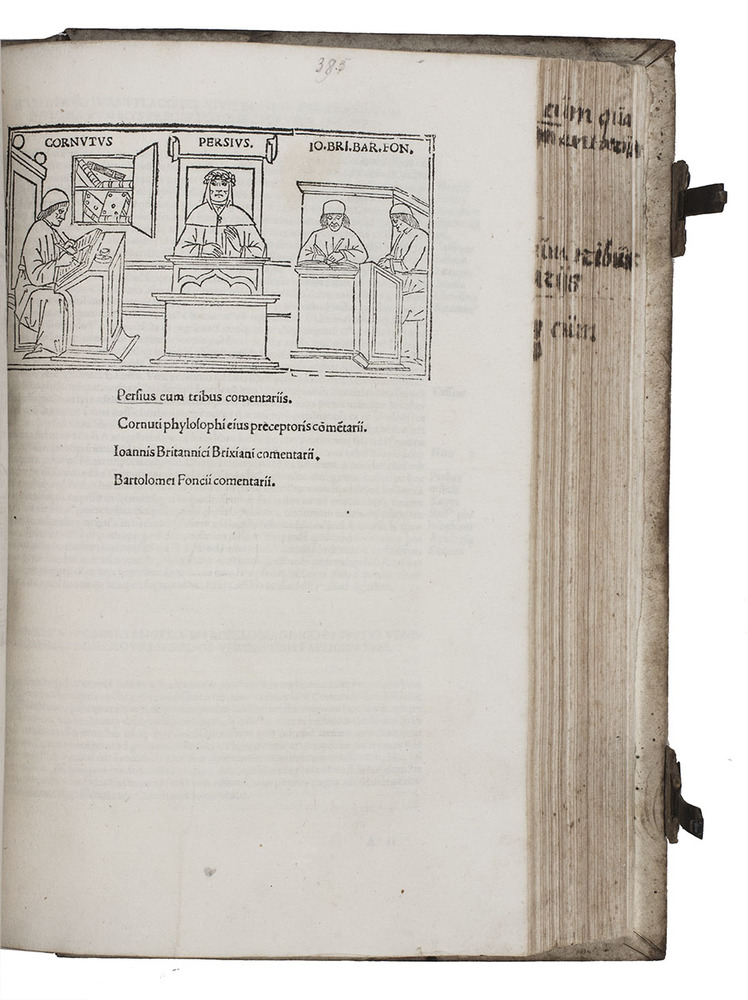 385
CORNVTVS PERSIVS. IO.BRI.BAR.FON.
Persius cum tribus comentariis.
Cornuti phylosophi eius preceptoris cōmētarii.
Ioannis Britannici Brixiani comentarii.
Bartolomei Foncii comentarii.
cūm